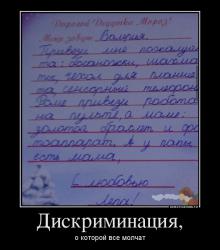 Дорогой Дедушка Мороз!
Меня зовут Валерия.
Привези мне пожалуйс
та: босоножки, шахма
ты, чехол для планше
та, сенсорный телефон.
Боме привези робота
на пульте, а маме:
золотой браслет и фо
тоаппарат. А у папы
есть мама,
С любовью
Лера!
Дискриминация,
о которой все молчат